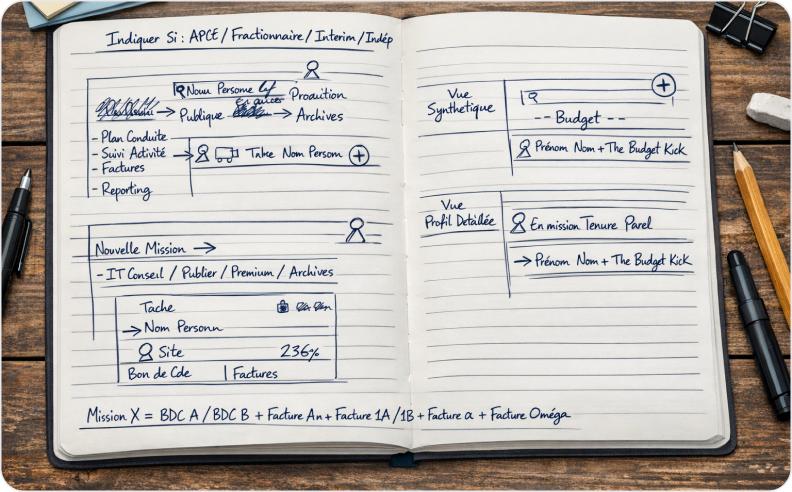 Indiquer Si : APCE / Fractionnaire / Interim / Indép
Nom Persome
Publique → Archives
Proaition
- Plan Conduite
- Suivi Activité →
- Factures
- Reporting
Takse Nom Person +
Nouvelle Mission →
- IT Conseil / Publier / Premium / Archives
Tache
→ Nom Personn
Site 236%
Bon de Cde | Factures
Vue
Synthetique
+
-- Budget --
Prénom Nom + The Budget Kick
Vue
Profil Detaillée
En mission Tenure Parel
→ Prénom Nom + The Budget Kick
Mission X = BDC A / BDC B + Facture An + Facture 1A / 1B + Facture α + Facture Oméga